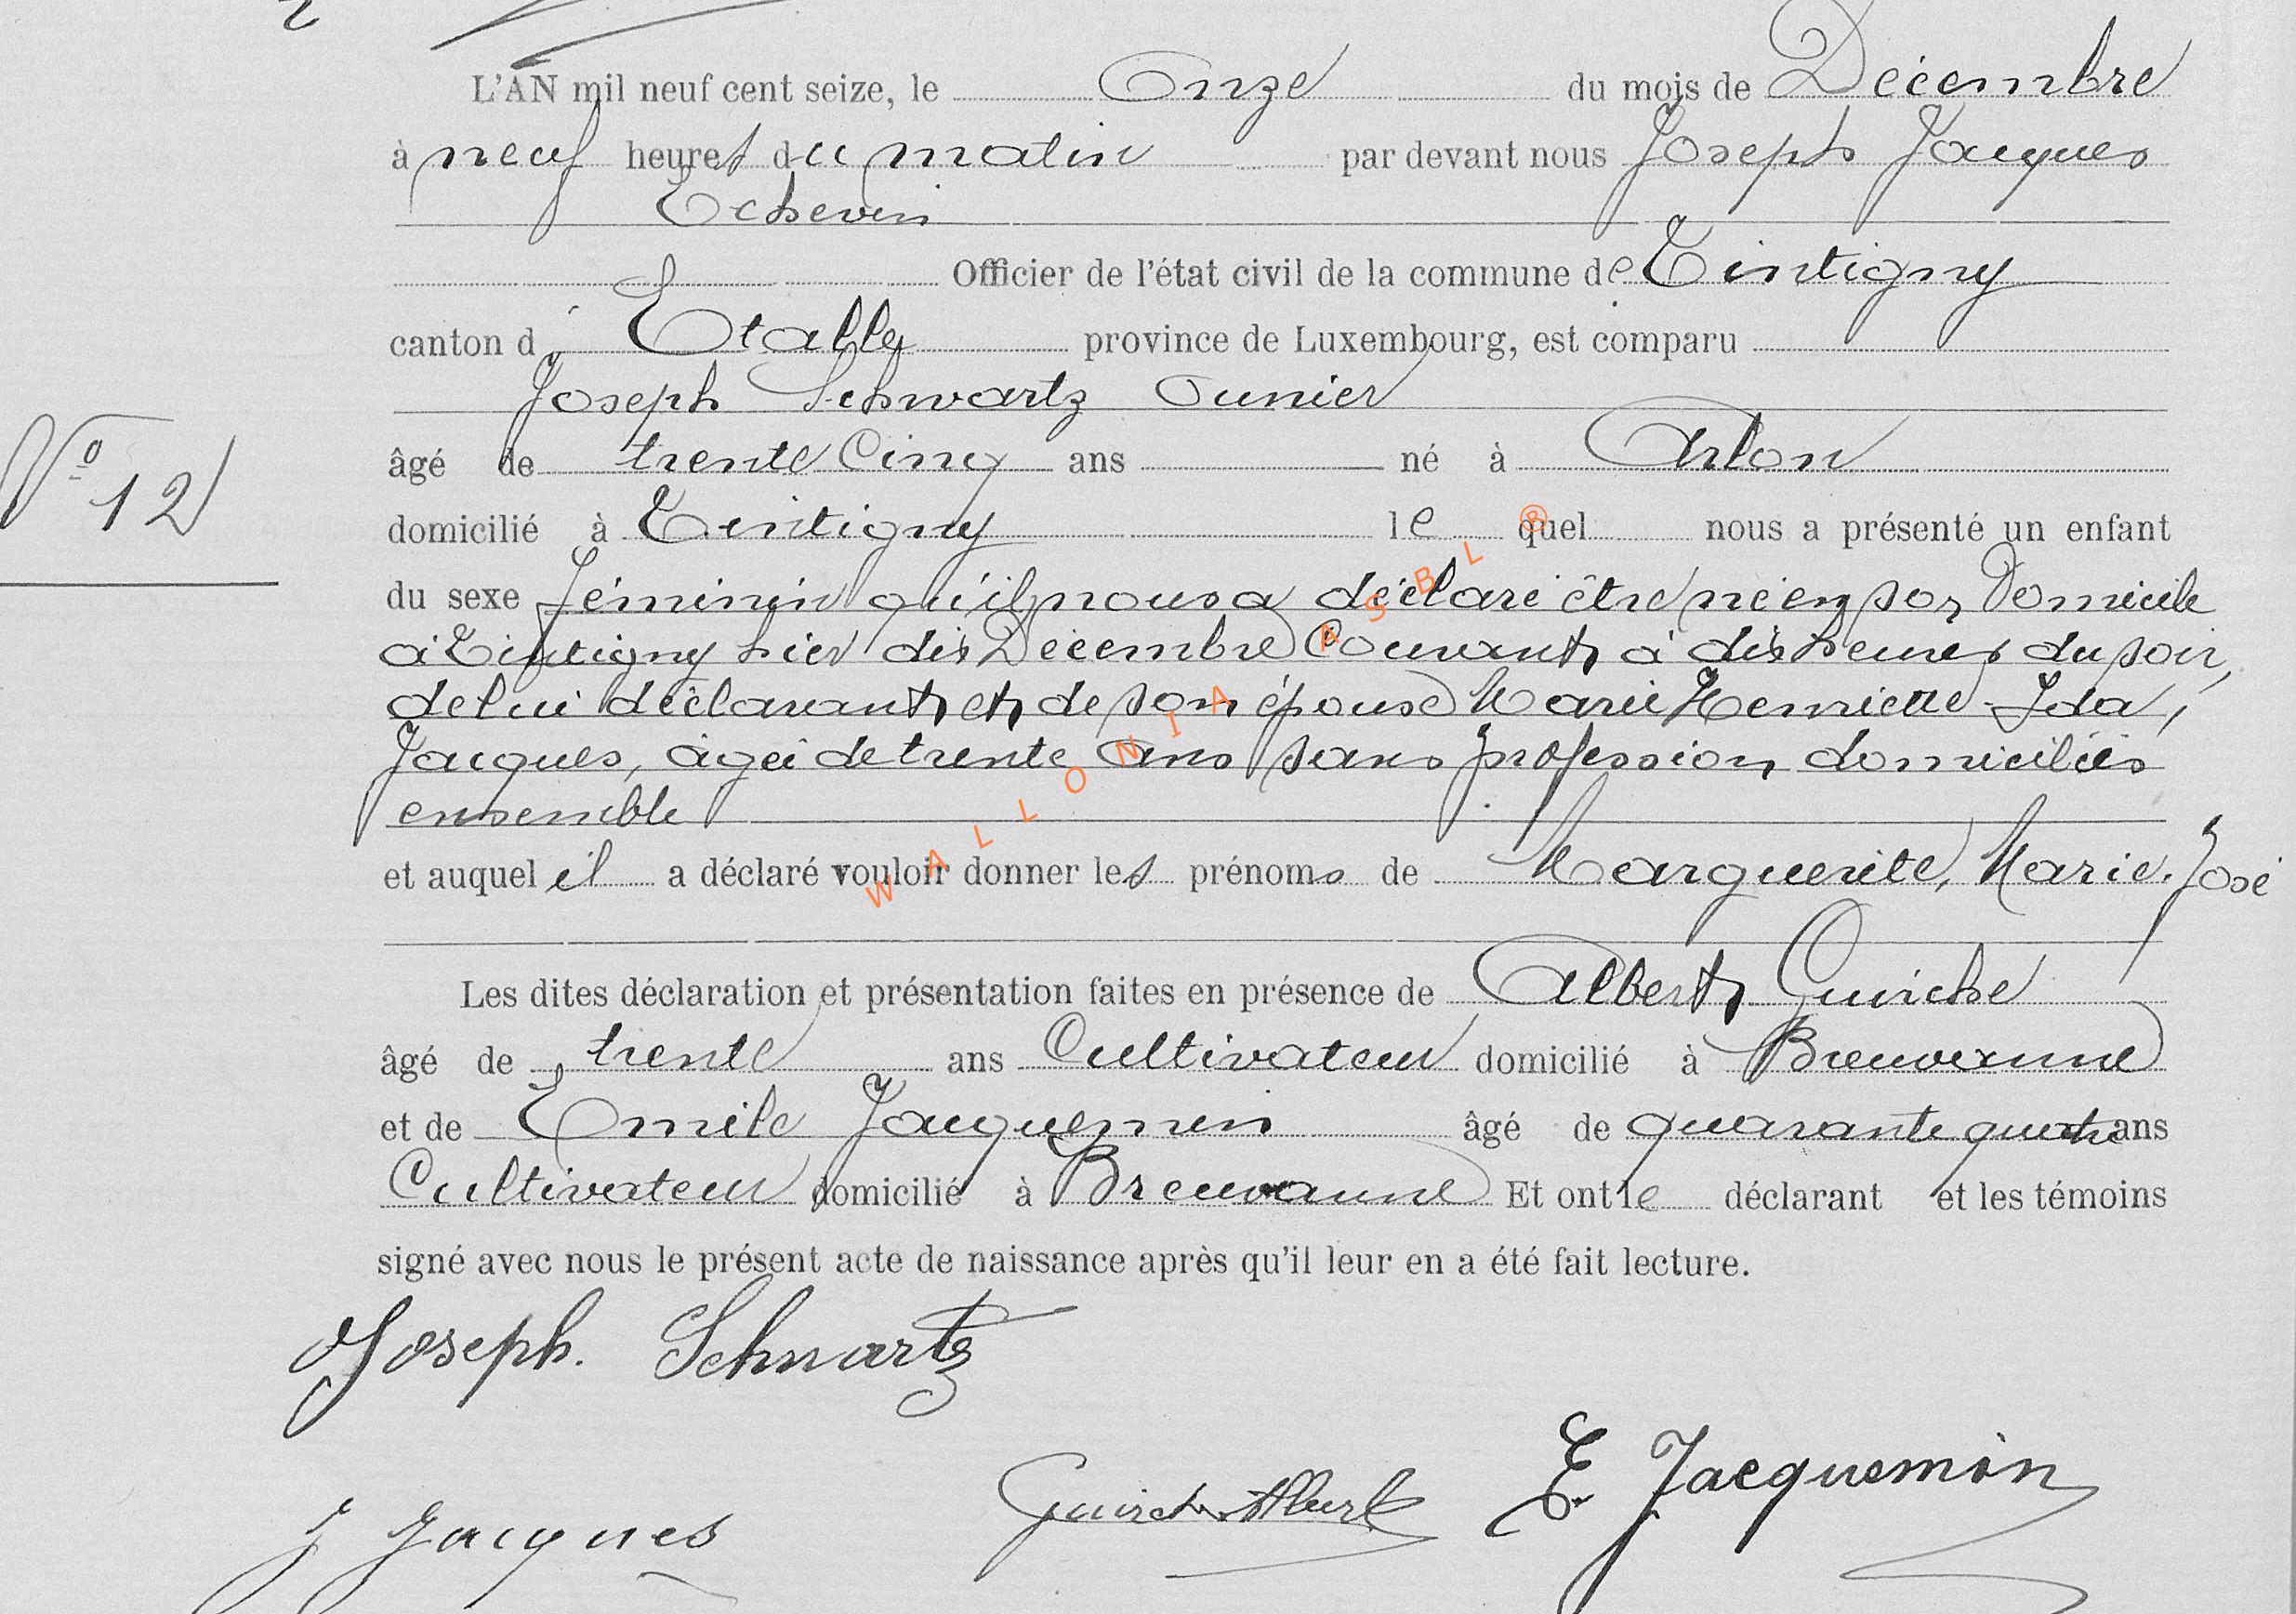 L'AN mil neuf cent seize, le Onze du mois de Décembre
à neuf heures du matin par devant nous Joseph Jacques
Echevin
Officier de l'état civil de la commune de Tintigny
canton d'Etalle province de Luxembourg, est comparu
Joseph Schwartz
âgé de trente Cinq ans né à Arlon
N° 12
domicilié à Tintigny lequel nous a présenté un enfant
du sexe féminin qu'il nous a déclaré être né en son Domicile
à Tintigny hier dix Décembre Courant à dix heures du soir,
de lui déclarant et de son épouse Marie Henriette Ida,
Jacques, âgée de trente ans sans profession domiciliés
ensemble
et auquel il a déclaré vouloir donner les prénoms de Marguerite, Marie. José
WALLONIA ASBL ®
Les dites déclaration et présentation faites en présence de Albert Guirche
âgé de trente ans Cultivateur domicilié à Breuvanne
et de Emile Jacquemin âgé de quarante quatre ans
Cultivateur domicilié à Breuvanne Et ont le déclarant et les témoins
signé avec nous le présent acte de naissance après qu'il leur en a été fait lecture.
Joseph. Schwartz
J Jacques Albert E. Jacquemin